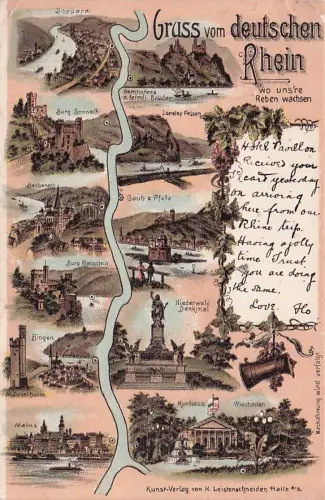 Gruss vom deutschen
Rhein
wo uns're
Reben wachsen
Boppard
Burg Sonneck
Bacharach
Burg Rheinstein
Bingen
Mäusethurm
Mainz
d. feindl. Brüder
Loreley Felsen
Caub & Pfalz
Niederwald
Denkmal
Kurhaus Wiesbaden
Hotel Pavillon
Recieved your
card yesterday
on arriving
here from our
Rhine trip.
Having a jolly
time. Trust
you are doing
the same.
Love. Flo
Nachahmung wird verfolgt
Kunst-Verlag von H. Leistenschneider, Halle a/s.